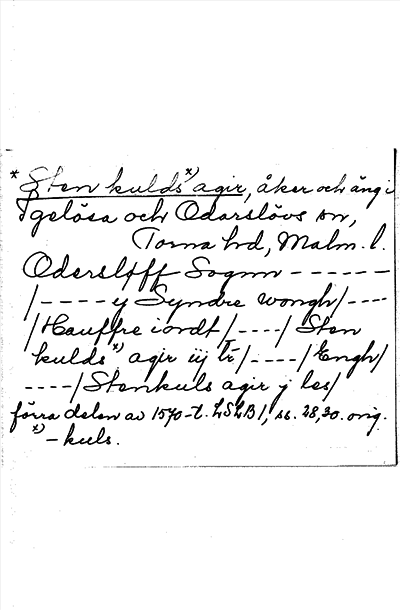 * Sten kulds x) agir, åker och äng i
Igelösa och Odarslövs sn,
Torna hd, Malm. l.
Odersløff Sognn - - - - - -
/- - - - y Syndre wongh/- - - -
/Hauffre iordt/- - - -/ Sten
kulds x) agir iij tr/- - - -/ Engh/
- - - -/ Stenkuls agir j les/
förra delen av 1570-t. LSLB 1, ss. 28, 30. orig.
x) - kuls.